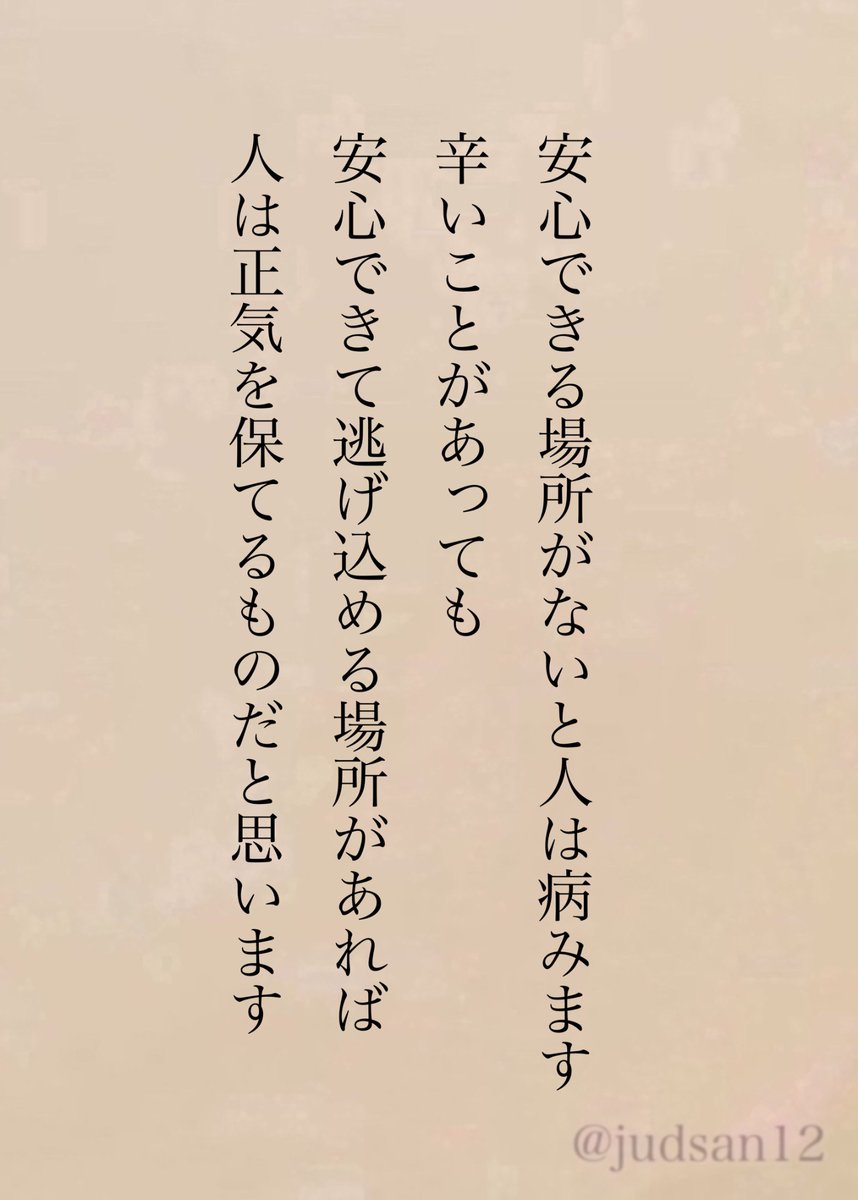 安心できる場所がないと人は病みます
辛いことがあっても
安心できて逃げ込める場所があれば
人は正気を保てるものだと思います
@judsan12